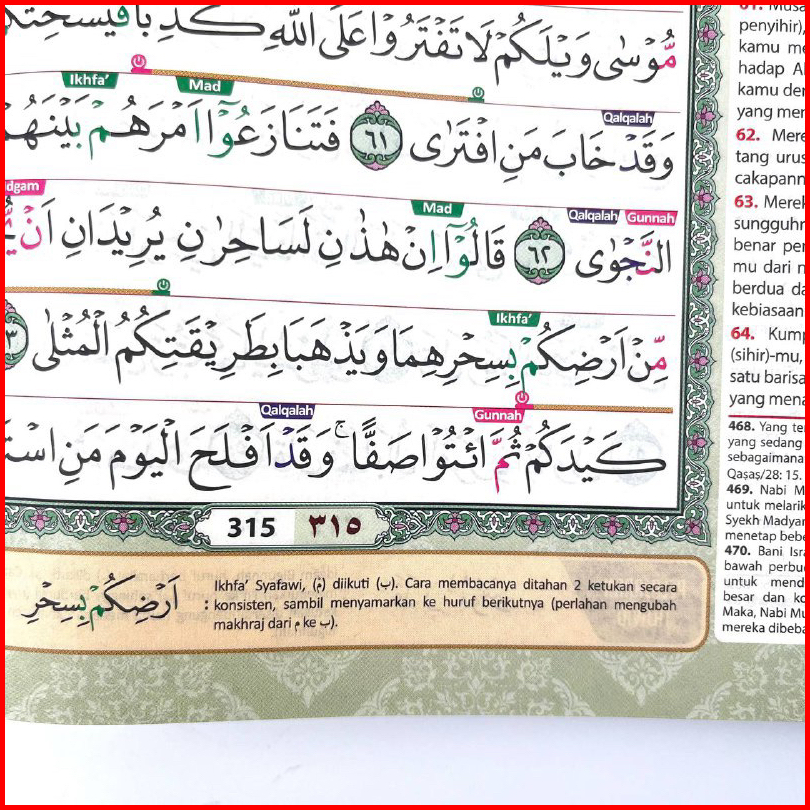 مُّوْسٰى وَيْلَكُمْ لَا تَفْتَرُوْا عَلَى اللّٰهِ كَذِبًا فَيُسْحِتَكُمْ
Ikhfa’ Mad Qalqalah
وَقَدْ خَابَ مَنِ افْتَرٰى ٦١ فَتَنَازَعُوْٓا اَمْرَهُمْ بَيْنَهُمْ
Idgam Mad Qalqalah Gunnah
النَّجْوٰى ٦٢ قَالُوْٓا اِنْ هٰذٰنِ لَسَاحِرٰنِ يُرِيْدَانِ اَنْ
Ikhfa’
مِّنْ اَرْضِكُمْ بِسِحْرِهِمَا وَيَذْهَبَا بِطَرِيْقَتِكُمُ الْمُثْلٰى
Qalqalah Gunnah
كَيْدَكُمْ ثُمَّ ائْتُوْا صَفًّاۚ وَقَدْ اَفْلَحَ الْيَوْمَ مَنِ
315 ٣١٥
اَرْضِكُمْ بِسِحْرِ : Ikhfa’ Syafawi, (مْ) diikuti (ب). Cara membacanya ditahan 2 ketukan secara
konsisten, sambil menyamarkan ke huruf berikutnya (perlahan mengubah
makhraj dari م ke ب).
61. Musa
penyihir),
kamu me
hadap Al
kamu der
yang mer
62. Mere
tang urus
cakapann
63. Merek
sungguhn
benar per
mu dari n
berdua da
kebiasaan
64. Kump
(sihir)-mu,
satu barisa
yang mena
468. Yang ter
yang sedang
sebagaimana
Qaṣaṣ/28: 15.
469. Nabi M
untuk melarik
Syekh Madyar
menetap bebe
470. Bani Isra
bawah perbu
untuk mend
besar dan ko
Maka, Nabi Mu
mereka dibeba